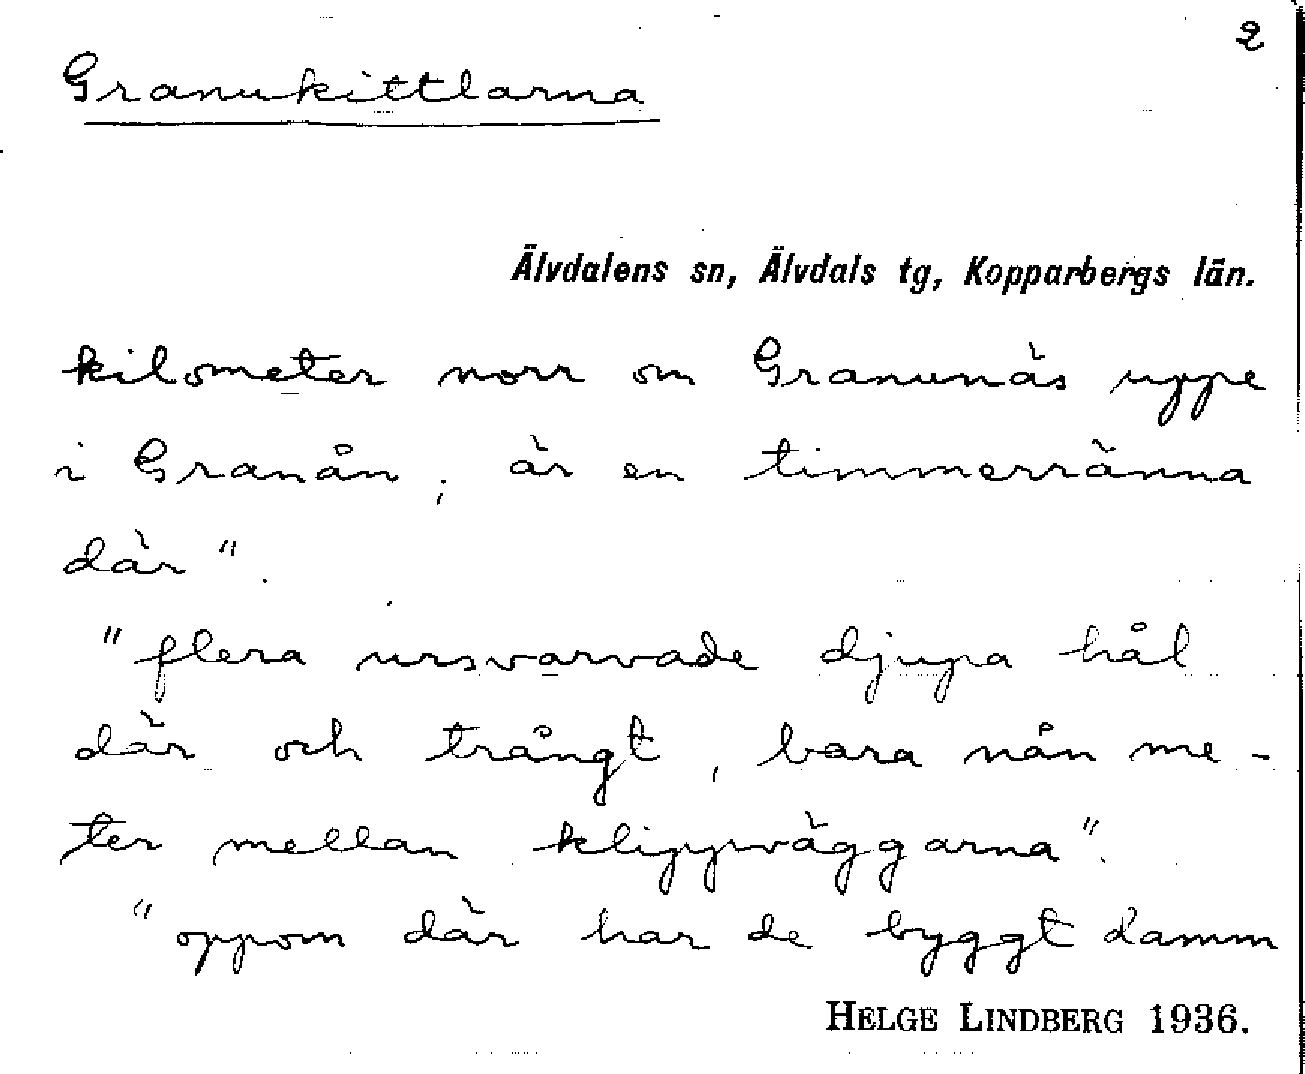 2
Granukittlarna
Älvdalens sn, Älvdals tg, Kopparbergs län.
kilometer norr om Granunäs uppe
i Granån, är en timmerränna
där".
"flera ursvarvade djupa hål
där och trångt, bara nån me-
ter mellan klippväggarna".
"oppom där har de byggt damm
HELGE LINDBERG 1936.